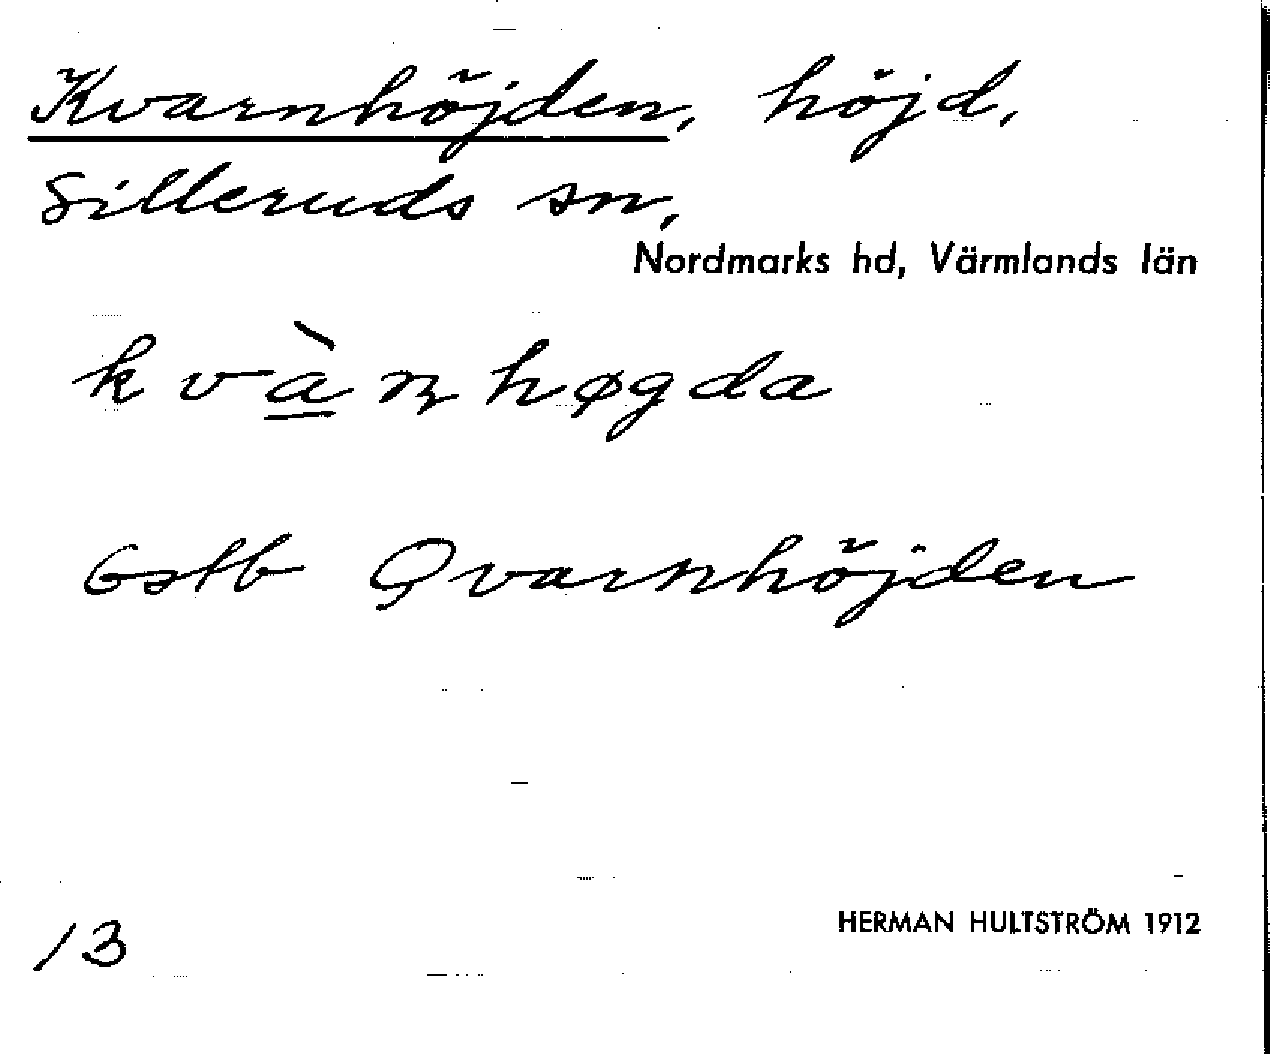 Kvarnhöjden, höjd,
Silleruds sn,
Nordmarks hd, Värmlands län
kvàɳhøgda
Gstb Qvarnhöjden
13
HERMAN HULTSTRÖM 1912